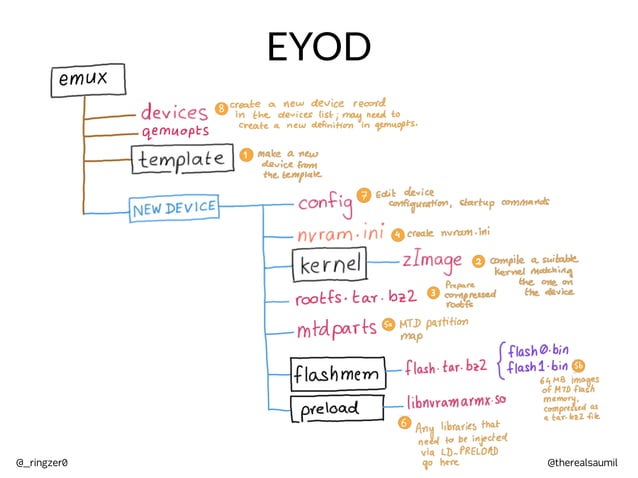 EYOD
emux
devices
8 create a new device record
in the devices list; may need to
create a new definition in qemuopts.
qemuopts
template
1 make a new
device from
the template
NEW DEVICE
config
7 Edit device
configuration, startup commands
nvram.ini
4 create nvram.ini
kernel
zImage
2 compile a suitable
kernel matching
the one on
the device
rootfs.tar.bz2
3 Prepare
compressed
rootfs
mtdparts
5a MTD partition
map
flashmem
flash.tar.bz2
flash0.bin
flash1.bin
5b
64 MB images
of MTD flash
memory,
compressed as
a tar.bz2 file
preload
libnvramarmx.so
6
Any libraries that
need to be injected
via LD_PRELOAD
go here
@_ringzer0
@therealsaumil